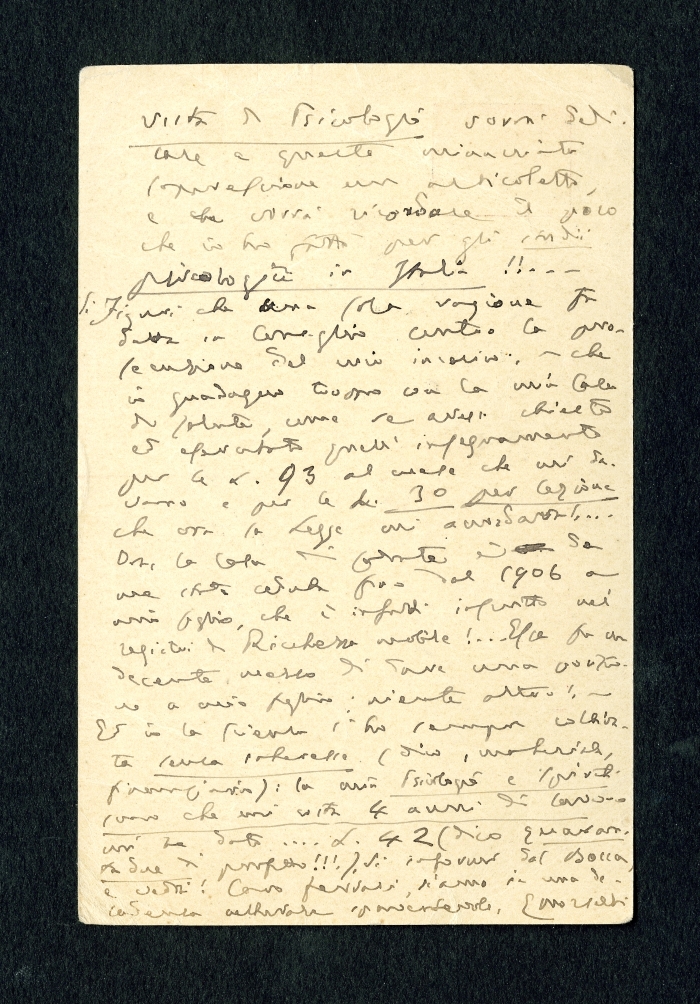 vista di Psicologia vorrà dedi-
care a questa minacciata
soppressione un articoletto,
e che vorrà ricordare il poco
che io ho fatto per gli studii
psicologici in Italia !!...
Si Figuri che una sola ragione fu
detta in Consiglio contro la pro-
secuzione del mio incarico: — che
io guadagno troppo con la mia Casa
di salute, come se avessi chiesto
ed esercitato quell'insegnamento
per le L. 93 al mese che mi da-
vano e per le L. 30 per lezione
che ora la Legge mi accorda!...
Ora, la Casa di salute è da
me stata ceduta fino dal 1906 a
mio figlio, che è infatti iscritto nei
registri di Ricchezza mobile!... Essa fu un
decente mezzo di dare una posizio-
ne a mio figlio: niente altro! —
Ed io la scienza l'ho sempre coltiva-
ta senza interesse (dico, materiale,
finanziario): la mia Psicologia e Spirit-
ismo che mi costa 4 anni di lavoro
mi ha dato .... L. 42 (dico quaran-
ta due di profitto!!!). Si informi dal Bocca,
e vedrà! Caro Ferrari, siamo in una de-
cadenza universitaria spaventevole. EMorselli